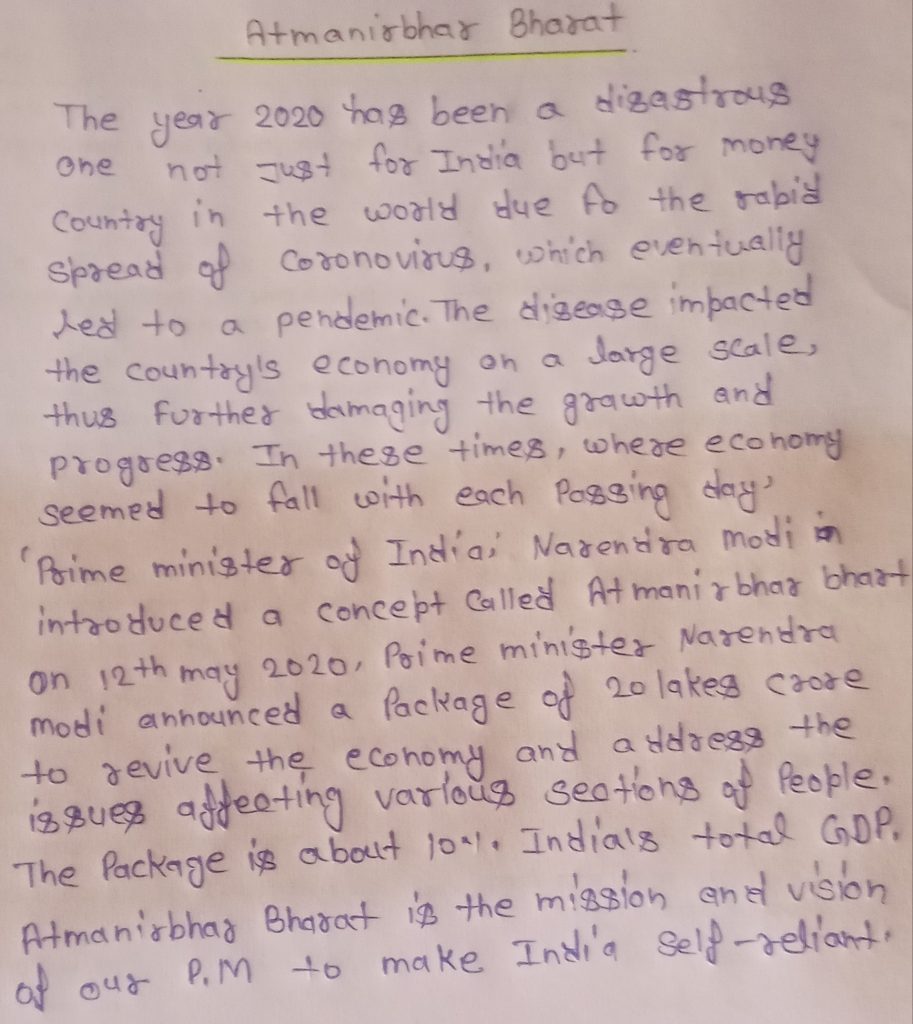 Atmanirbhar Bharat
The year 2020 has been a disastrous
one not Just for India but for money
Country in the world due to the rapid
spread of Coronovirus, which eventually
led to a pendemic. The disease impacted
the country's economy on a large scale,
thus further damaging the growth and
progress. In these times, where economy
seemed to fall with each Passing day,
'Prime minister of India, Narendra modi in
introduced a concept Called Atmanirbhar bhart
on 12th may 2020, Prime minister Narendra
modi announced a Package of 20 lakes crore
to revive the economy and address the
issues affecting various sections of People.
The Package is about 10%. India's total GDP.
Atmanirbhar Bharat is the mission and vision
of our P.M to make India self-reliant.